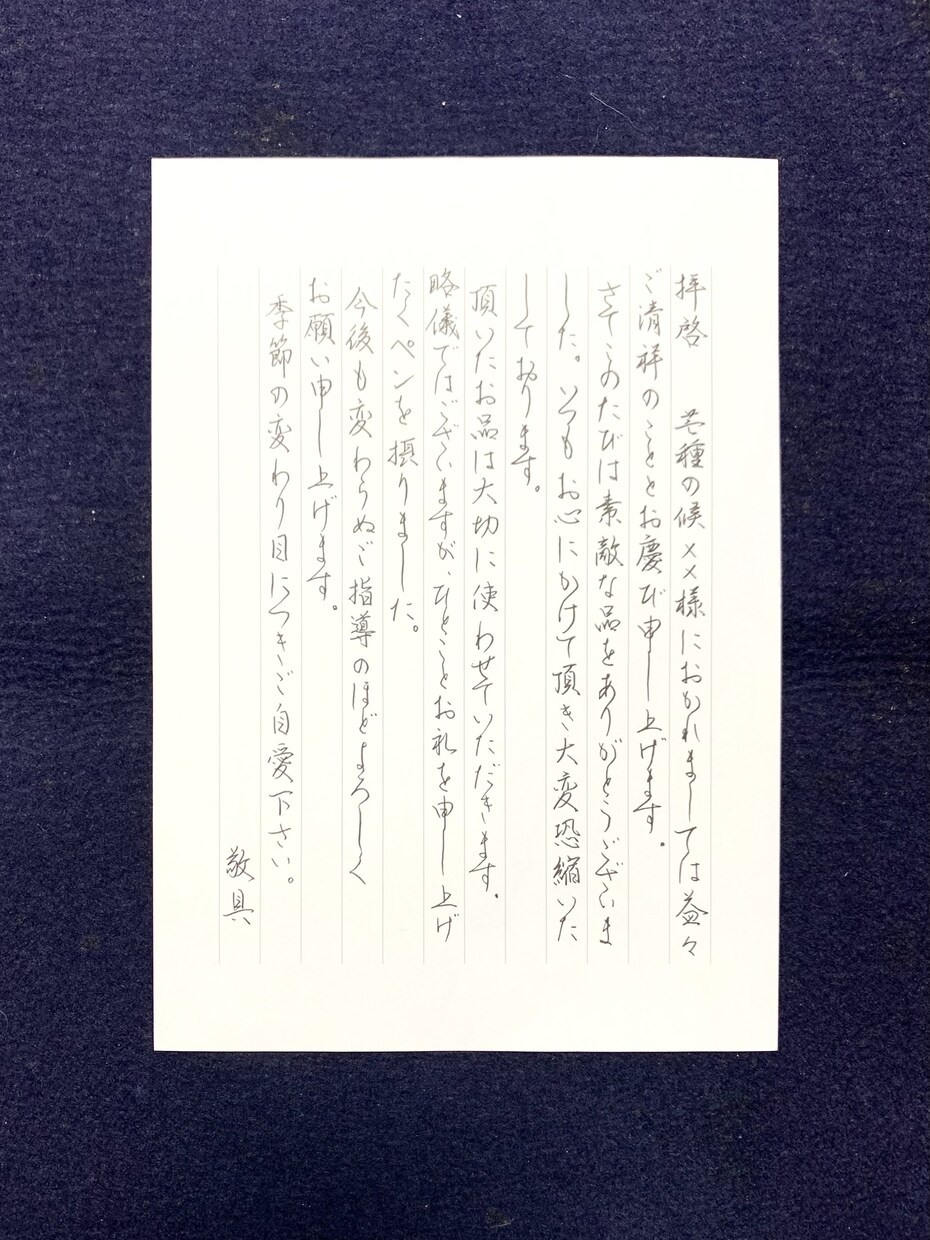 拝啓　芒種の候××様におかれましては益々
ご清祥のこととお慶び申し上げます。
さてこのたびは素敵な品をありがとうございま
した。いつもお心にかけて頂き大変恐縮いた
しております。
頂いたお品は大切に使わせていただきます。
略儀ではございますが、ひとことお礼を申し上げ
たくペンを摂りました。
今後も変わらぬご指導のほどよろしく
お願い申し上げます。
季節の変わり目につきご自愛下さい。
敬具